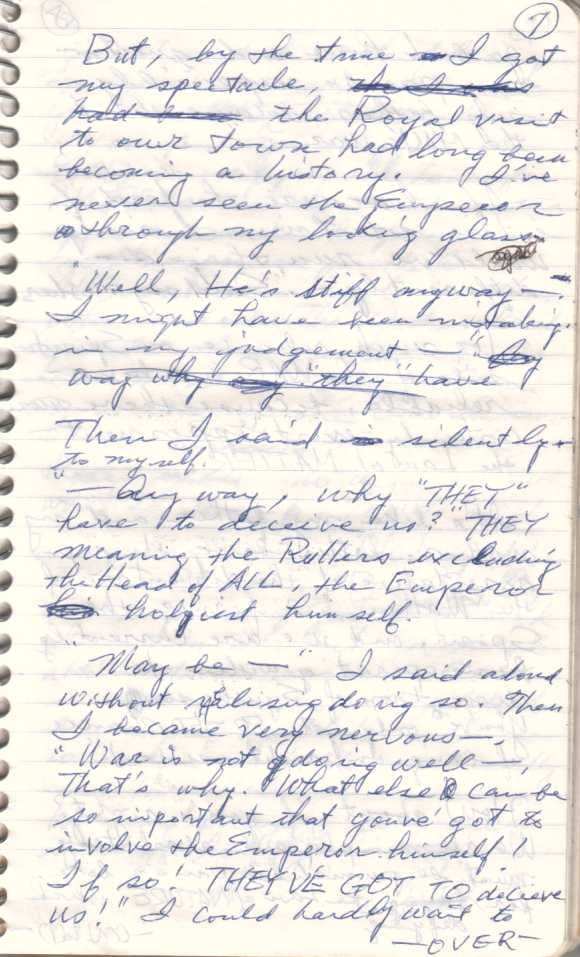 7
But, by the time I got
my spectacle,
the Royal visit
to our town had long been
becoming a history. I've
never seen the Emperor
through my looking glass.
"Well, He's stiff anyway —.
I might have been mistaking
in my judgement — "
way why any "they" have
Then I said silently
to myself.
"— Any way, why "THEY"
have to deceive us?" THEY
meaning the Rullers excluding
the Head of ALL, the Emperor
holpiest himself.
"May be —" I said aloud
without realising doing so. Then
I became very nervous —,
"War is not going well —,
That's why. What else can be
so important that youve' got to
involve the Emperor himself!
If so! THEYVE GOT TO decieve
us!" I could hardly wait to
— OVER —